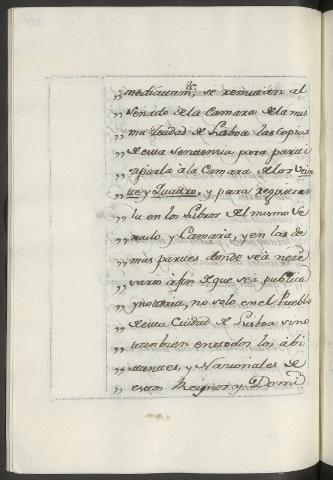 „ mediatam.te se remitirán al
„ Senado de la Camara de la mis
„ ma Ciudad de Lisboa las copias
„ de esta Sentencia para parti
„ ciparla à la Camara de los Vein
„ te y Quatro, y para registrar
„ la en los Libros del mismo Se
„ nado y Camara, y en las de
„ mas partes donde sea nece
„ sario à fin de que sea publica
„ y notoria, no solo en el Pueblo
„ de esta Ciudad de Lisboa sino
„ tambien en todos los abi
„ tantes, y Nacionales de
„ estos Reynos y Domi